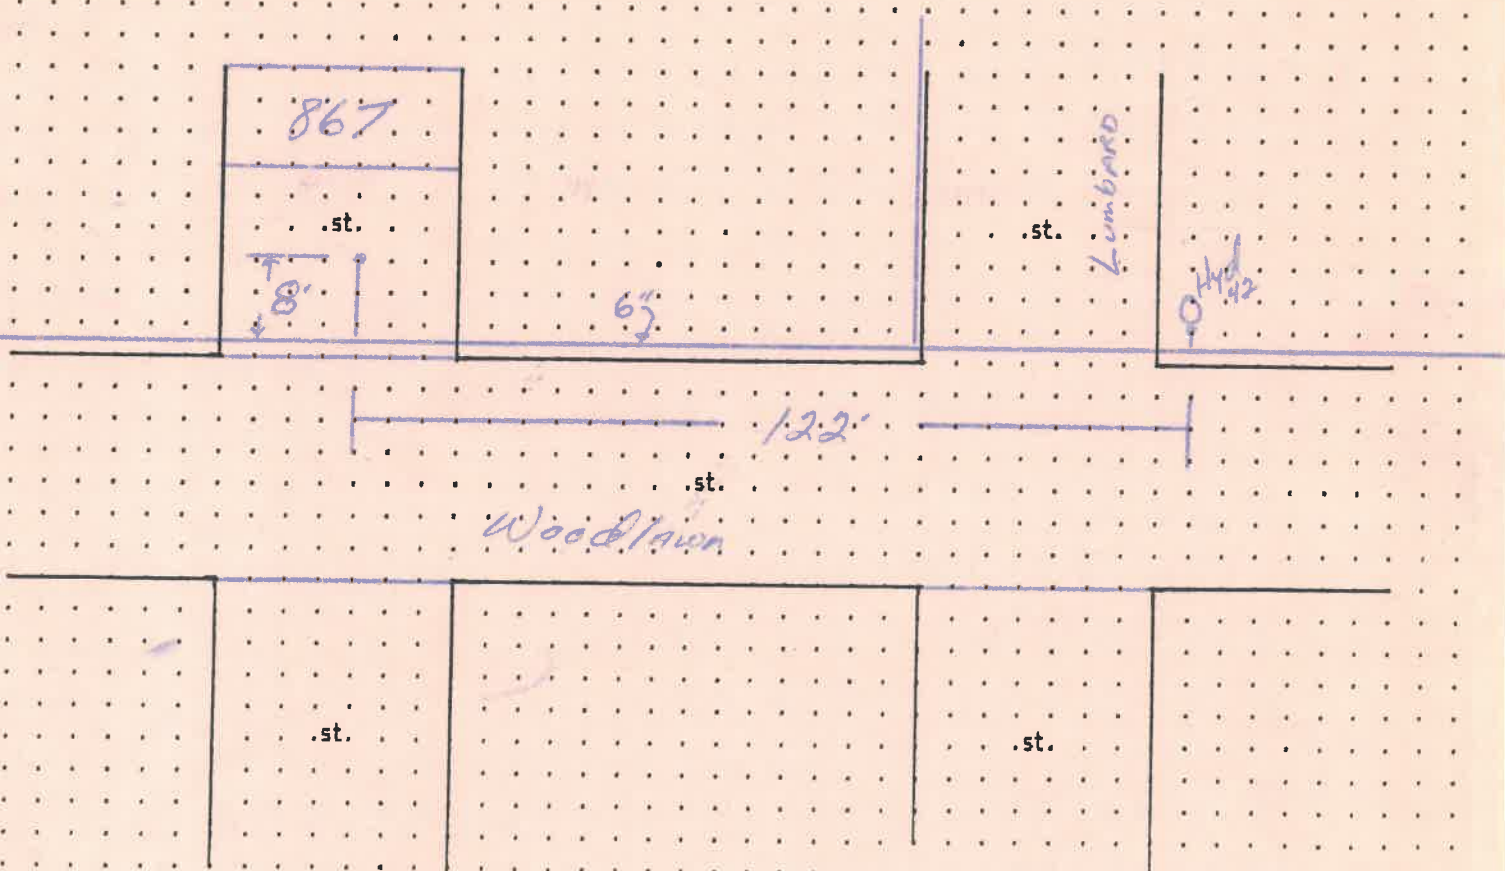 867
.st.
8'
6"
.st.
LumbARD
Hyd
42
122'
.st.
Woodlawn
.st.
.st.